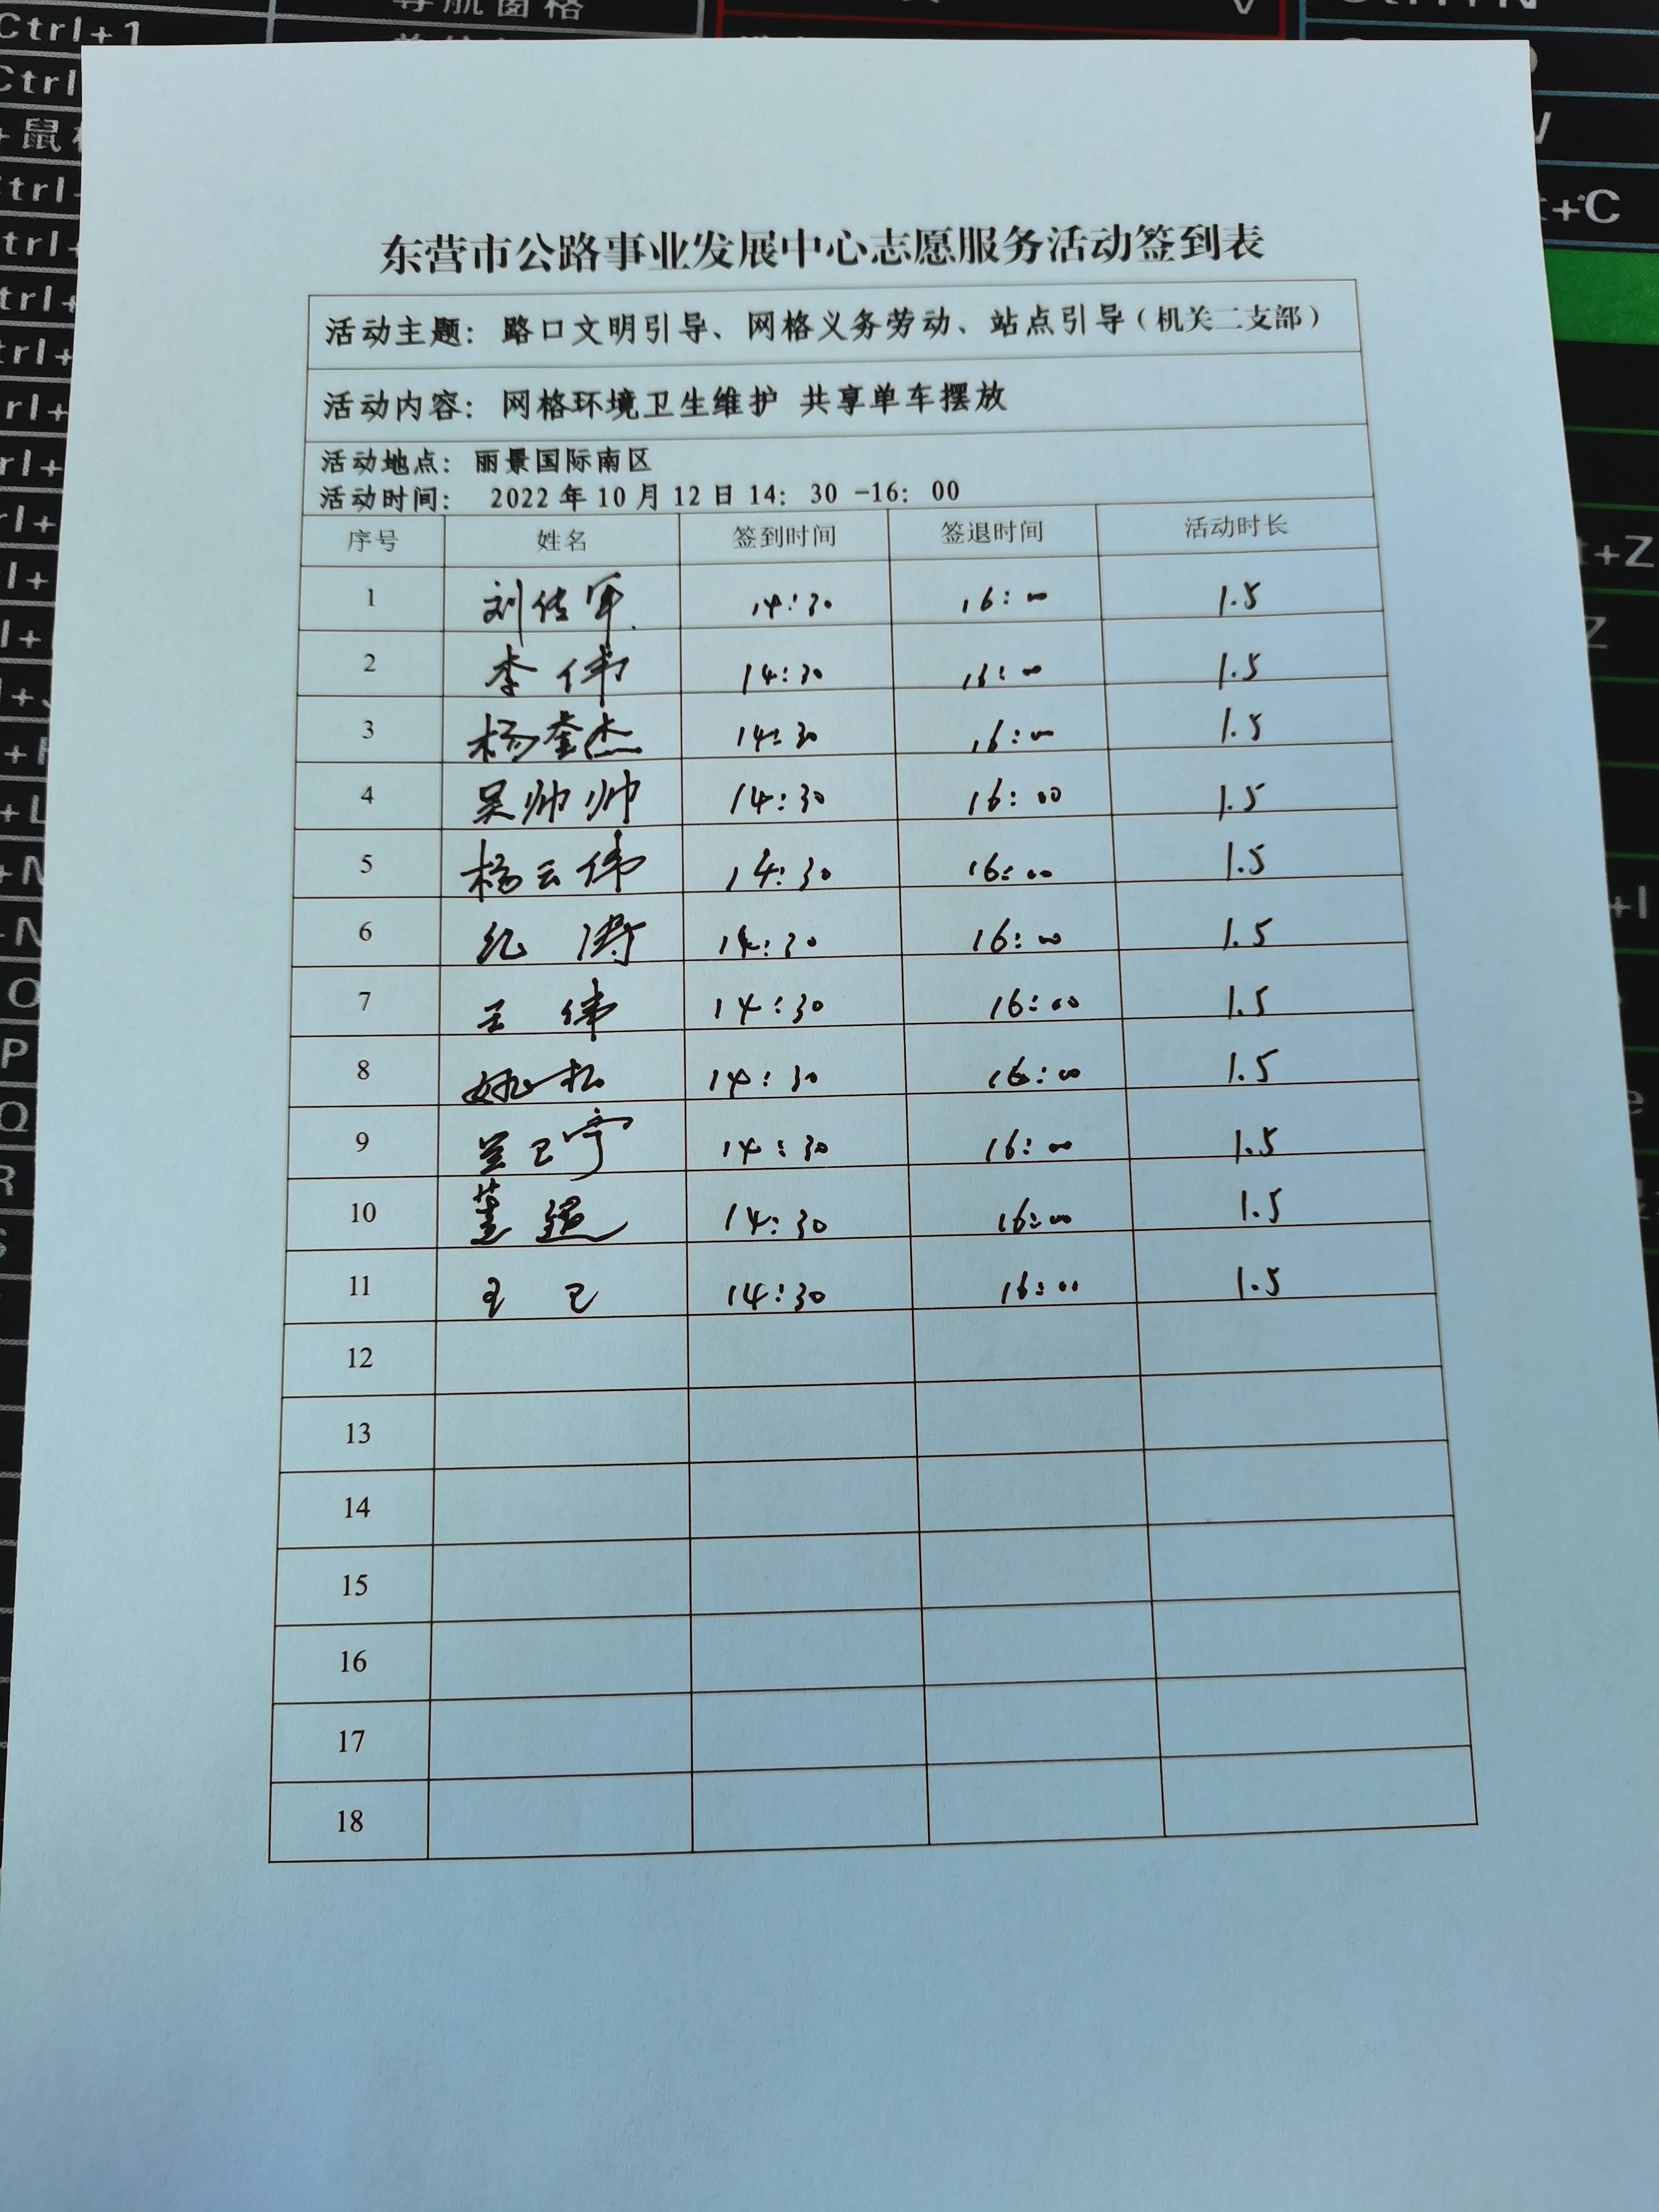 导航窗格
Ctrl+1
东营市公路事业发展中心志愿服务活动签到表
活动主题：路口文明引导、网格义务劳动、站点引导（机关二支部）
活动内容：网格环境卫生维护 共享单车摆放
活动地点：丽景国际南区
活动时间： 2022年10月12日14：30-16：00
序号 姓名 签到时间 签退时间 活动时长
1 刘传军 14:30 16:00 1.5
2 李伟 14:30 16:00 1.5
3 杨奎杰 14:30 16:00 1.5
4 吴帅帅 14:30 16:00 1.5
5 杨云伟 14:30 16:00 1.5
6 纪涛 14:30 16:00 1.5
7 王伟 14:30 16:00 1.5
8 姚松 14:30 16:00 1.5
9 14:30 16:00 1.5
10 董 14:30 16:00 1.5
11 14:30 16:00 1.5
12
13
14
15
16
17
18